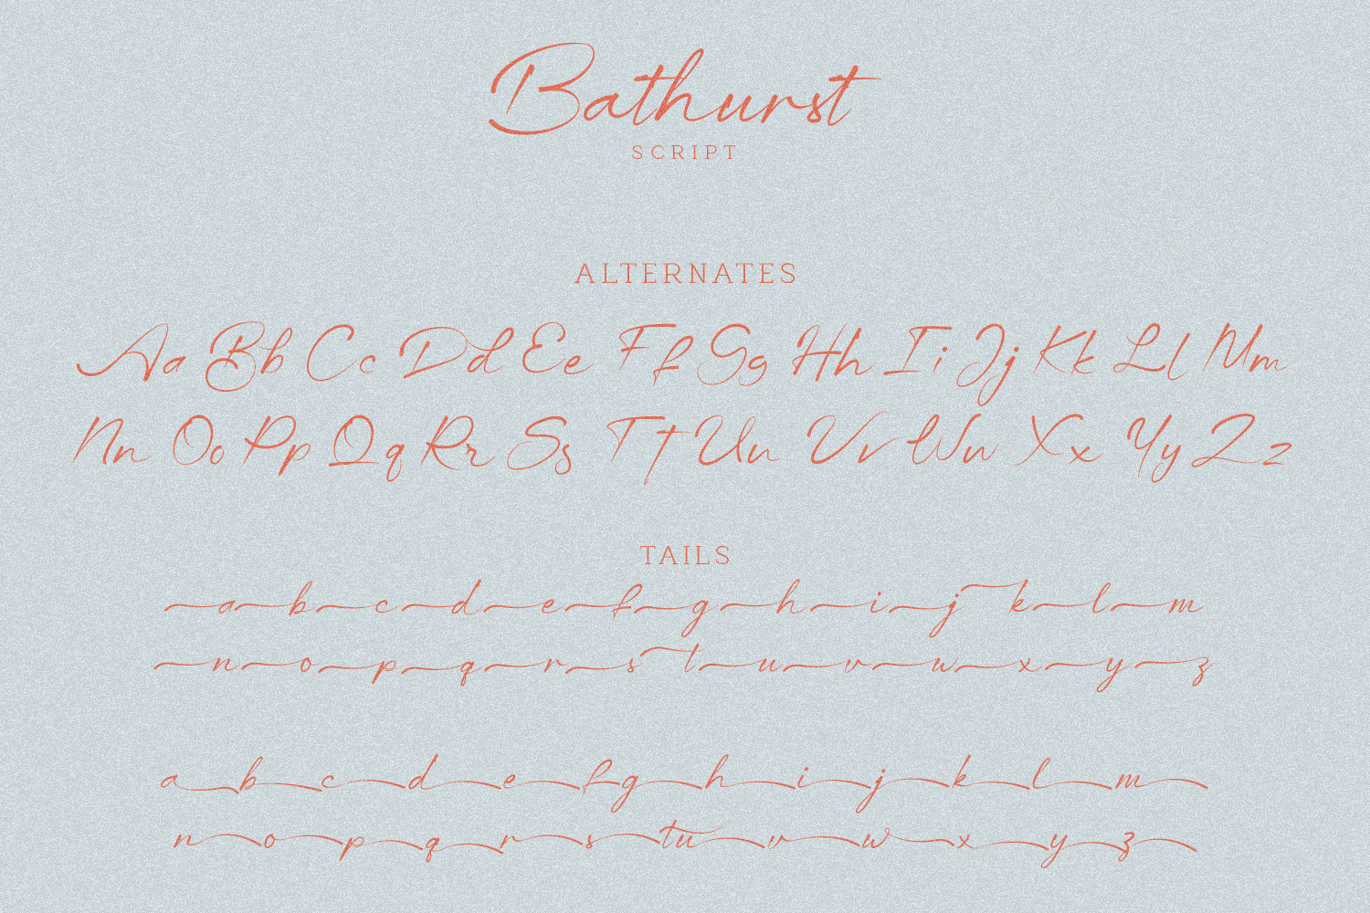 Bathurst
SCRIPT
ALTERNATES
Aa Bb Cc Dd Ee Ff Gg Hh Ii Jj Kk Ll Mm
Nn Oo Pp Qq Rr Ss Tt Uu Vv Ww Xx Yy Zz
TAILS
a b c d e f g h i j k l m
n o p q r s t u v w x y z
a b c d e f g h i j k l m
n o p q r s t u v w x y z